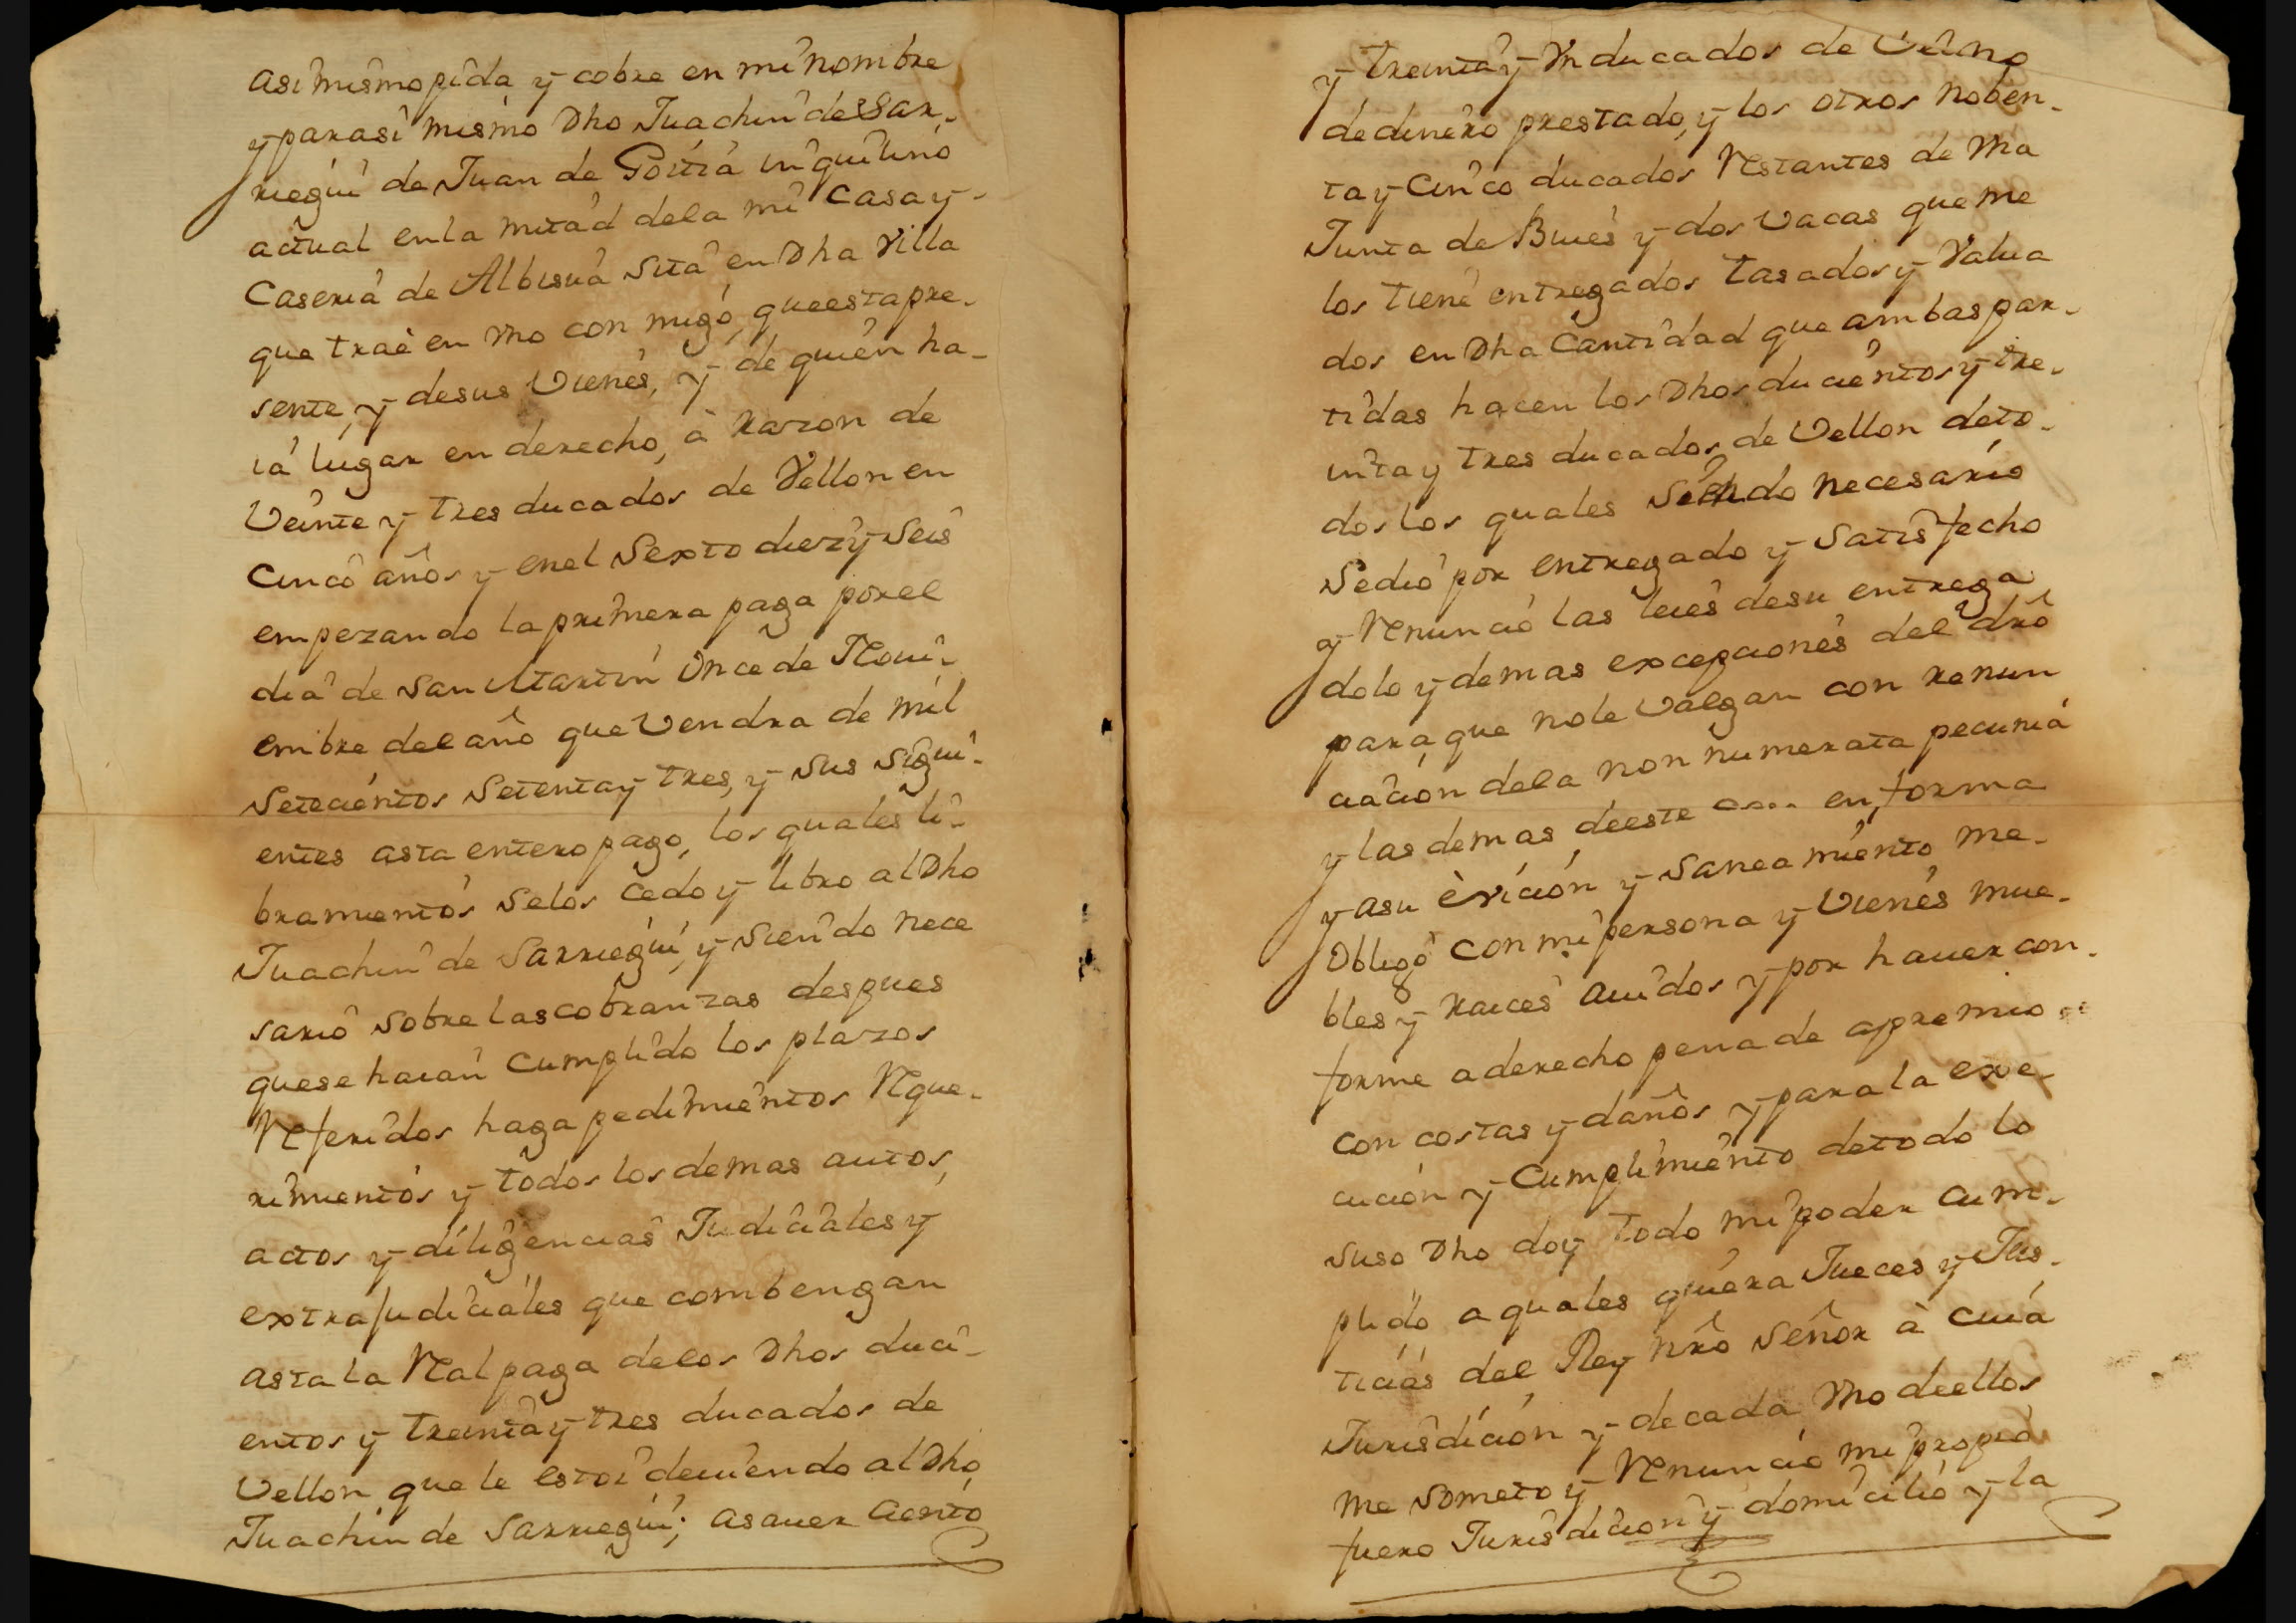 asi mismo pida y cobre en mi nombre
y para si mismo Dho Juachin de Sar-
riegui de Juan de Goitia inquilino
actual en la mitad dela mi Casa y
Caseria de Albisua sita en Dha Villa
que trae en vno con migo, que esta pre-
sente, y desus Vienes, y de quien ha-
ia lugar en derecho, à razon de
Veinte y tres ducados de Vellon en
Cinco años y enel Sexto diez y Seis
empezando la primera paga porel
dia de San Martin Once de Novi-
embre del año que Vendra de mil
Setecientos Setenta y tres, y sus sigui-
entes asta entero pago, los quales li-
bramientos selos Cedo y libro al Dho
Juachin de Sarriegui, y siendo nece
sario sobre las cobranzas despues
que se haian Cumplido los plazos
Referidos haga pedimientos Reque-
rimientos y todos los demas autos,
actos y diligencias Judiciales y
extrajudiciales que combengan
asta la Real paga delos Dhos duci-
entos y treinta y tres ducados de
Vellon que le estoi deviendo al Dho
Juachin de Sarriegui; asaver Ciento
y treinta y Vn ducados de
de dinero prestado, y los otros noben-
ta y Cinco ducados Restantes de Vna
Junta de Bues y dos Vacas que me
los tiene entregados tasados y Valua
dos en Dha Cantidad que ambas par-
tidas hacen los Dhos ducientos y tre-
inta y tres ducados de Vellon de to-
dos los quales Siendo necesario
Sedio por entregado y Satisfecho
y Renuncio las leies desu entrega
dolo y demas excepciones del dro
para que nole Valgan con renun
ciacion dela non numerata pecunia
y las demas deeste en forma
y asu Evicion y Saneamiento me
Obligo con mi persona y Vienes mue-
bles y Raices avidos y por haver con-
forme a derecho pena de apremio
con costas y daños y para la exe-
cucion y Cumplimiento de todo lo
suso Dho doy todo mi poder Cum-
plido a quales quiera Jueces y Jus-
ticias del Rey nro Señor à Cuia
Jurisdicion y decada Vno deellos
me someto y Renuncio mi propio
fuero Jurisdicion y domicilio y la